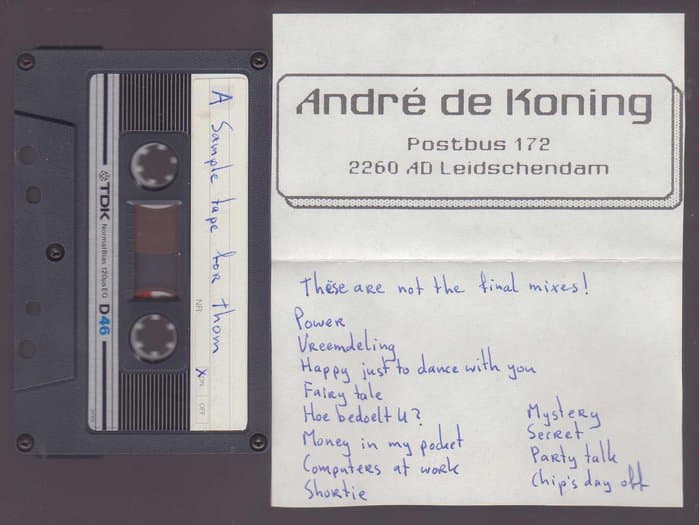 A Sample tape for thom
TDK Normal Bias 120µs EQ D46
NR
X ON OFF
André de Koning
Postbus 172
2260 AD Leidschendam
These are not the final mixes!
Power
Vreemdeling
Happy just to dance with you
Fairy tale
Hoe bedoelt U?
Money in my pocket
Computers at work
Shortie
Mystery
Secret
Party talk
Chip's day off